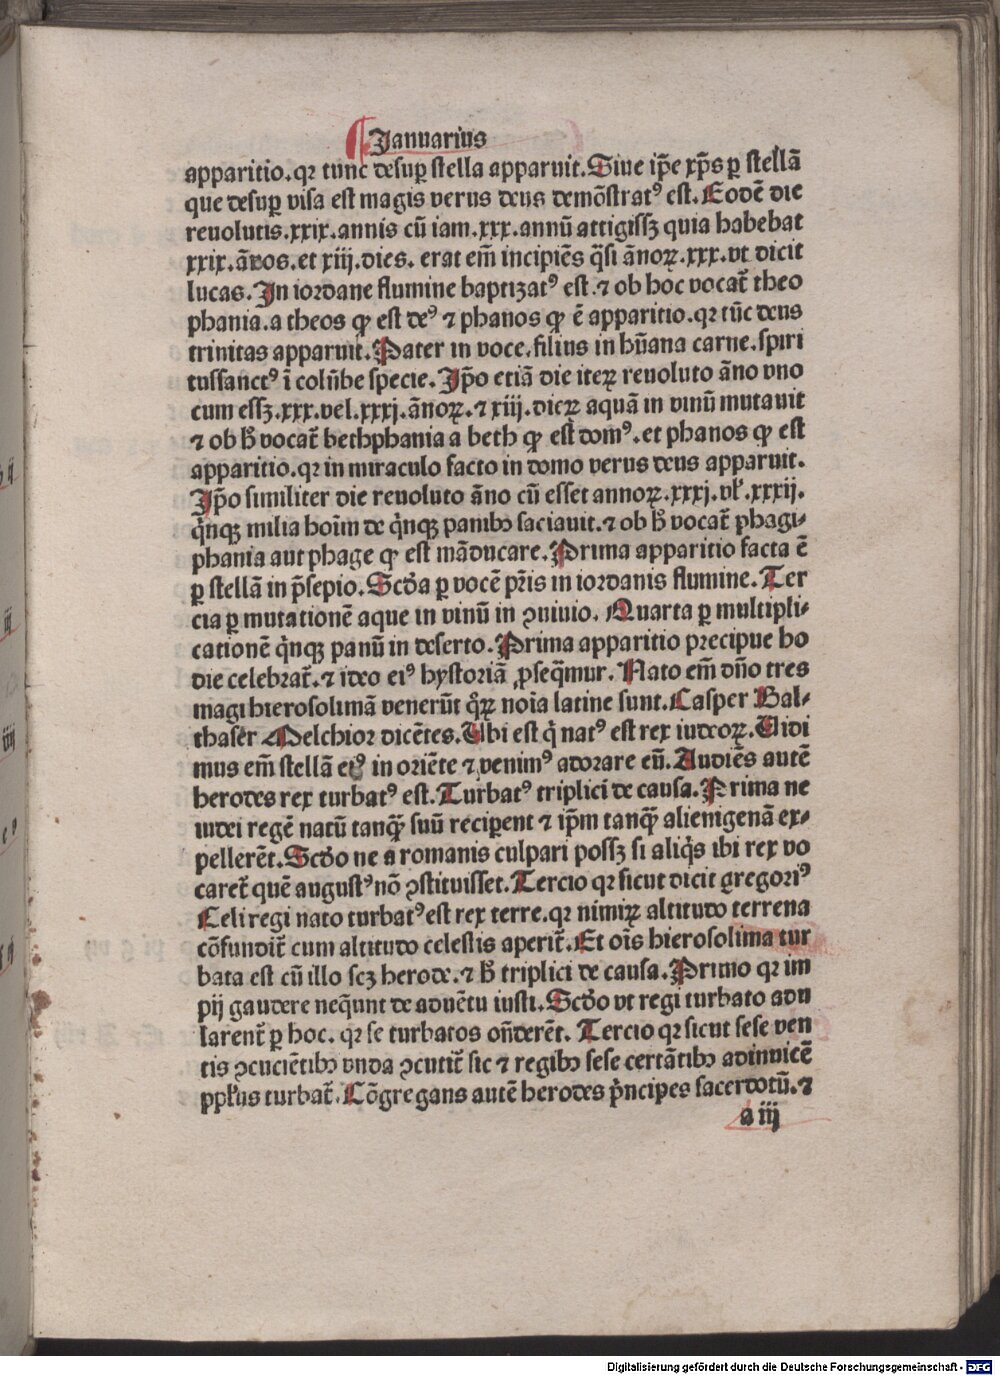 Januarius
apparitio.qꝛ tunc desuꝑ stella apparuit.Siue ip̄e xp̄s ꝑ stellā
que desuꝑ visa est magis verus deus demōstratꝰ est.Eodē die
reuolutis.xxix.annis cū iam.xxx.annū attigissꝫ quia habebat
xxix.ānos.et xiij.dies. erat em̄ incipiēs q̄si ānoꝝ.xxx.vt dicit
lucas.In iordane flumine baptizatꝰ est.⁊ ob hoc vocat̄ theo
phania.a theos qꝫ est deꝰ ⁊ phanos qꝫ ē apparitio.qꝛ tūc deus
trinitas apparuit.Pater in voce.filius in hūana carne.spiri
tussanctꝰ ī colūbe specie.Ip̄o etiā die iteꝝ reuoluto āno vno
cum essꝫ.xxx.vel.xxxj.ānoꝝ.⁊ xiij.dieꝝ aquā in vinū mutauit
⁊ ob h̄ vocat̄ bethphania a beth qꝫ est domꝰ.et phanos qꝫ est
apparitio.qꝛ in miraculo facto in domo verus deus apparuit.
Ip̄o similiter die reuoluto āno cū esset annoꝝ.xxxj.vl̄.xxxij.
q̇nqꝫ milia hoīm de q̇nqꝫ panibꝫ saciauit.⁊ ob h̄ vocat̄ phagi⸗
phania aut phage qꝫ est māducare.Prima apparitio facta ē
ꝑ stellā in p̄sepio.Scd̄a ꝑ vocē pr̄is in iordanis flumine.Ter
cia ꝑ mutationē aque in vinū in ꝯuiuio. Quarta ꝑ multipli⸗
cationē q̇nqꝫ panū in deserto.Prima apparitio precipue ho
die celebrat̄.⁊ ideo eiꝰ hystoriā ꝓseq̄mur. Nato em̄ dn̄o tres
magi hierosolimā venerūt q̄ꝝ noīa latine sunt.Casper Bal⸗
thaser Melchior dicētes.Ubi est q̇ natꝰ est rex iudeoꝝ.Uidi
mus em̄ stellā eiꝰ in oriēte ⁊ venimꝰ adorare eū.Audiēs autē
herodes rex turbatꝰ est.Turbatꝰ triplici de causa.Prima ne
iudei regē natū tanqꝫ suū reciperent ⁊ ip̄m tanqꝫ alienigenā ex⸗
pellerēt.Scd̄o ne a romanis culpari possꝫ si aliq̇s ibi rex vo
caret̄ quē augustꝰ nō ꝯstituisset.Tercio qꝛ sicut dicit gregoriꝰ
Celi regi nato turbatꝰ est rex terre.qꝛ nimiꝝ altitudo terrena
cōfundit̄ cum altitudo celestis aperit̄.Et oīs hierosolima tur
bata est cū illo scꝫ herode.⁊ h̄ triplici de causa.Primo qꝛ im
pij gaudere neq̄unt de aduētu iusti.Scd̄o vt regi turbato adu
larent̄ ꝑ hoc. qꝛ se turbatos on̄derēt. Tercio qꝛ sicut sese ven
tis ꝯcuciētibꝫ vnda ꝯcutit̄ sic ⁊ regibꝫ sese certātibꝫ adinuicē
ppl̄us turbat̄.Cōgregans autē herodes p̄ncipes sacerdotū.⁊
a iij
Digitalisierung gefördert durch die Deutsche Forschungsgemeinschaft - DFG